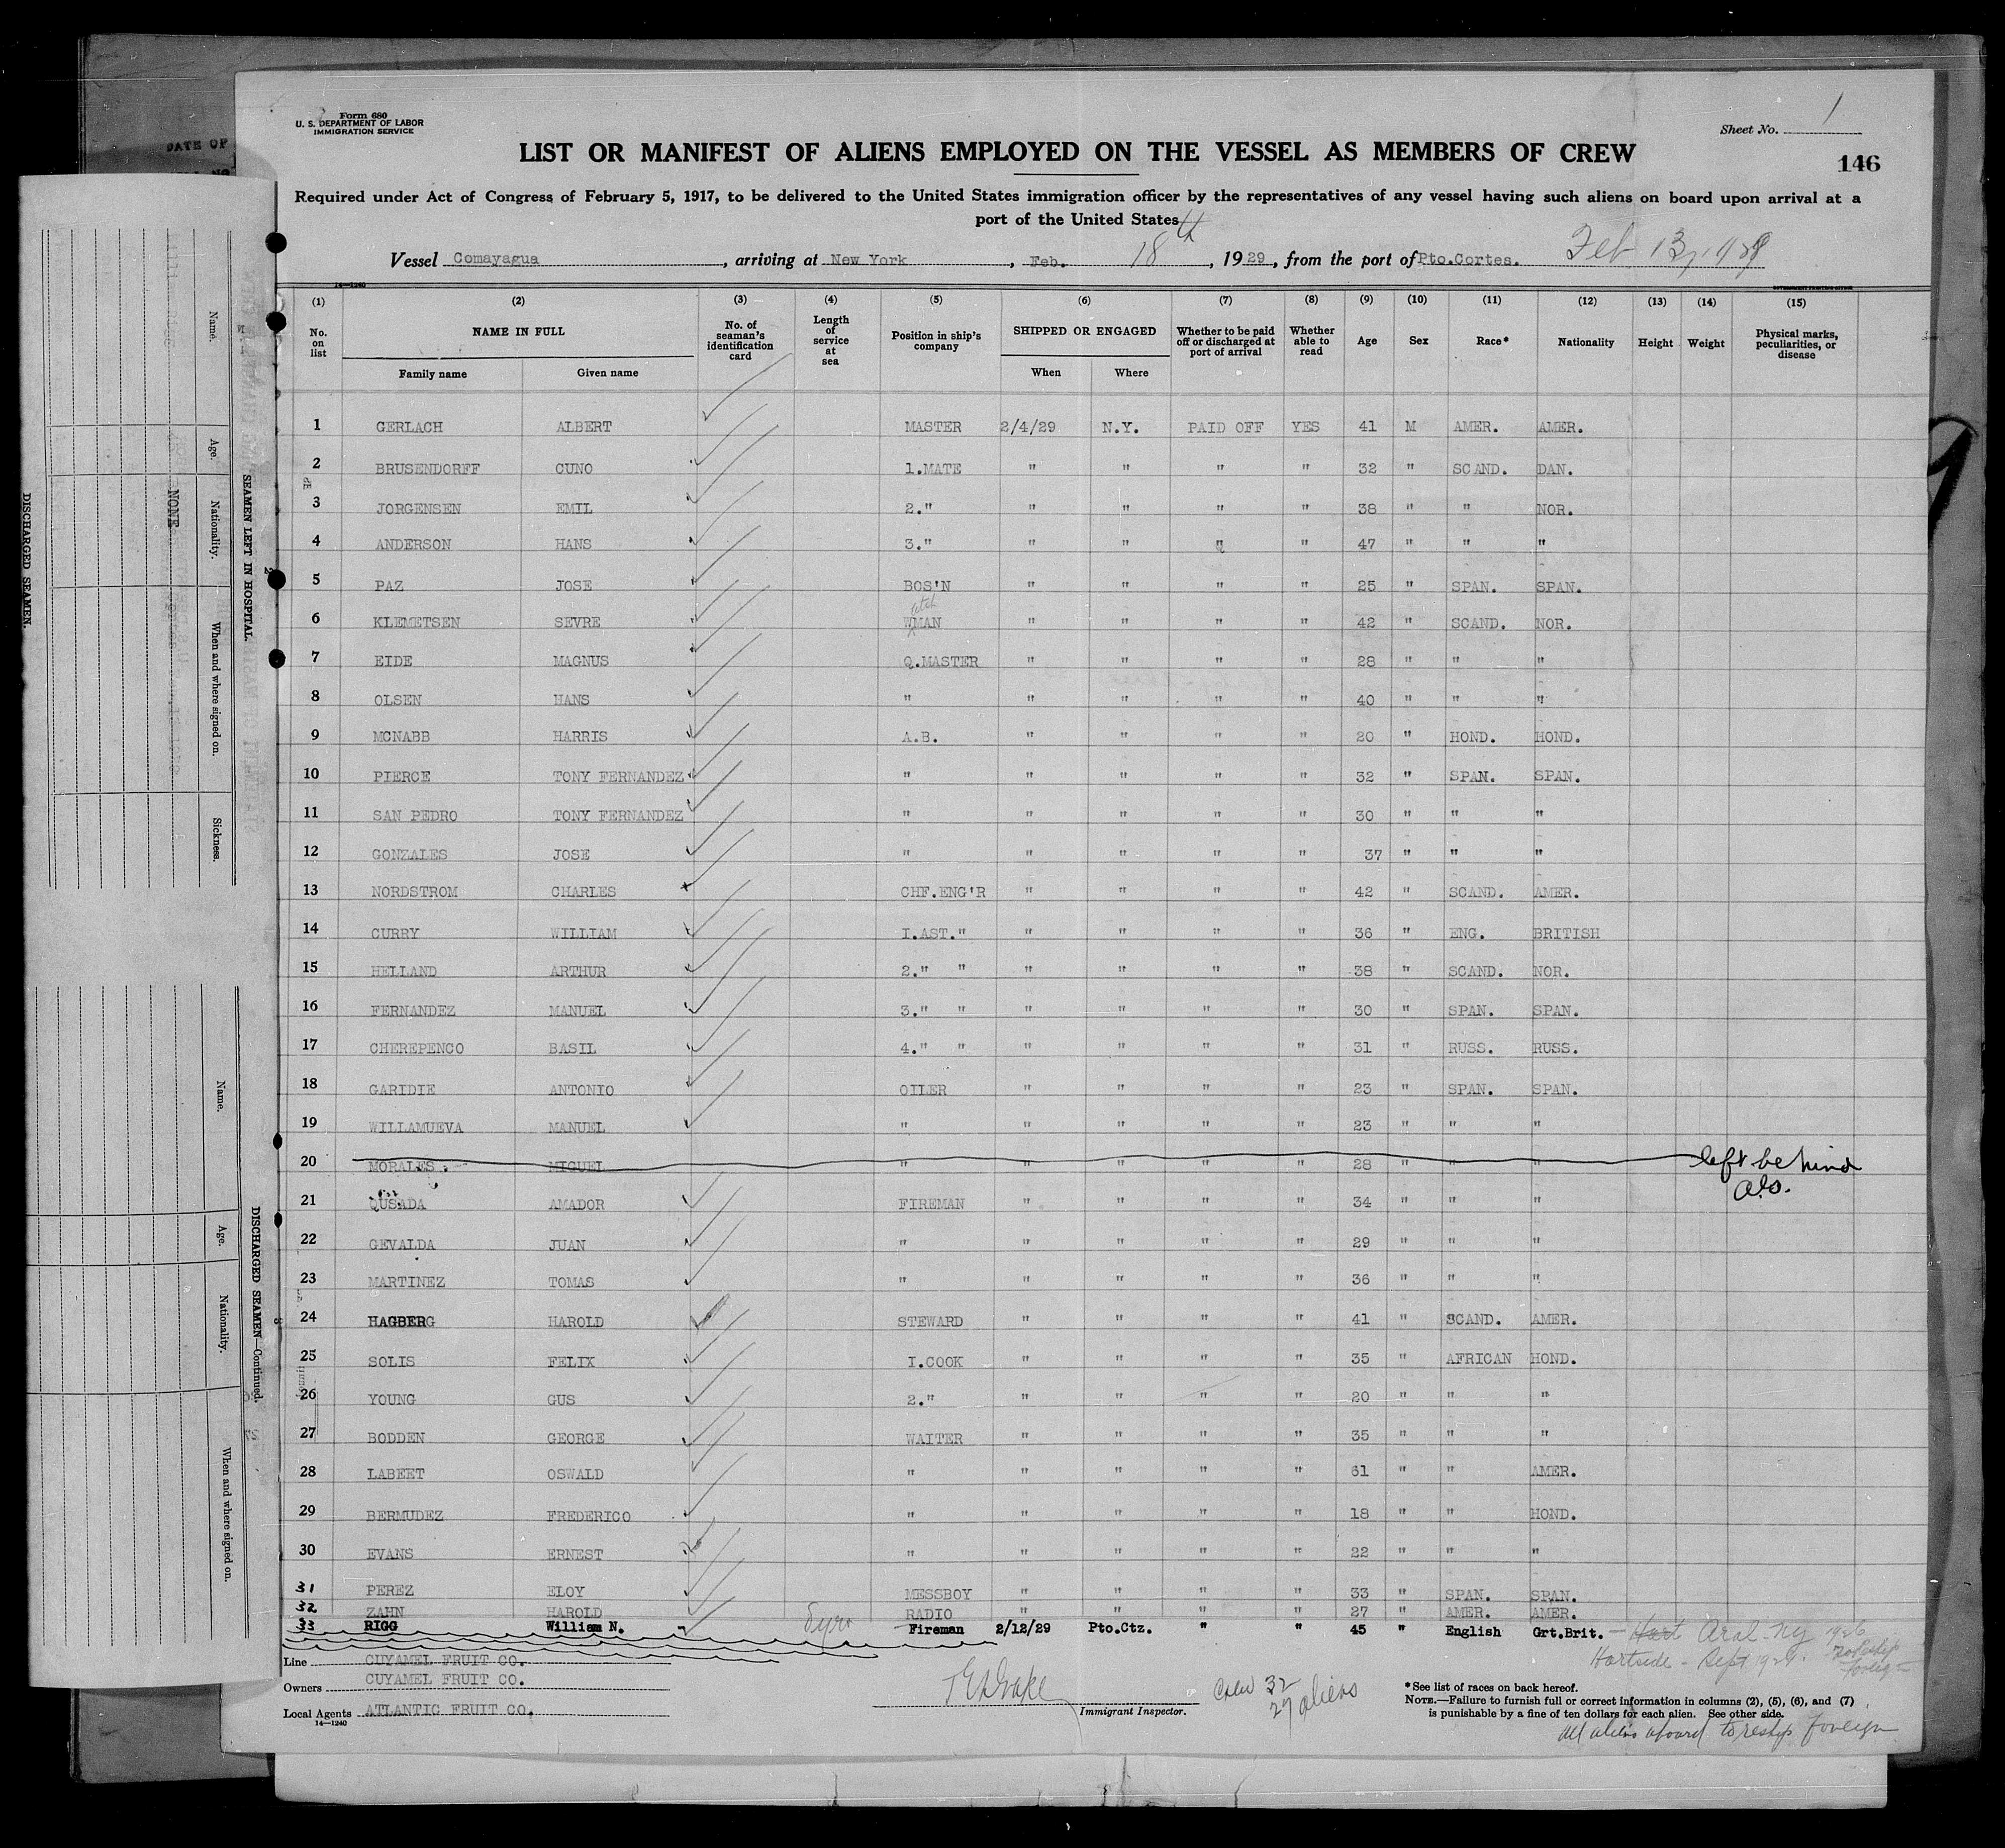 Form 680
U. S. DEPARTMENT OF LABOR
IMMIGRATION SERVICE
Sheet No. 1
LIST OR MANIFEST OF ALIENS EMPLOYED ON THE VESSEL AS MEMBERS OF CREW
146
Required under Act of Congress of February 5, 1917, to be delivered to the United States immigration officer by the representatives of any vessel having such aliens on board upon arrival at a
port of the United States
Vessel Comayagua, arriving at New York, Feb. 18th, 1929, from the port of Pto.Cortes. Feb 13, 1929
14—1240
(1) (2) (3) (4) (5) (6) (7) (8) (9) (10) (11) (12) (13) (14) (15)
No. on list NAME IN FULL No. of seaman's identification card Length of service at sea Position in ship's company SHIPPED OR ENGAGED Whether to be paid off or discharged at port of arrival Whether able to read Age Sex Race* Nationality Height Weight Physical marks, peculiarities, or disease
Family name Given name When Where
1 GERLACH ALBERT MASTER 2/4/29 N.Y. PAID OFF YES 41 M AMER. AMER.
2 BRUSENDORFF CUNO 1.MATE " " " " 32 " SCAND. DAN.
3 JORGENSEN EMIL 2." " " " " 38 " " NOR.
4 ANDERSON HANS 3." " " " " 47 " " "
5 PAZ JOSE BOS'N " " " " 25 " SPAN. SPAN.
6 KLEMETSEN SEVRE W atch MAN " " " " 42 " SCAND. NOR.
7 EIDE MAGNUS Q.MASTER " " " " 28 " " "
8 OLSEN HANS " " " " " 40 " " "
9 MCNABB HARRIS A.B. " " " " 20 " HOND. HOND.
10 PIERCE TONY FERNANDEZ " " " " " 32 " SPAN. SPAN.
11 SAN PEDRO TONY FERNANDEZ " " " " " 30 " " "
12 GONZALES JOSE " " " " " 37 " " "
13 NORDSTROM CHARLES CHF.ENG'R " " " " 42 " SCAND. AMER.
14 CURRY WILLIAM I.AST." " " " " 36 " ENG. BRITISH
15 HELLAND ARTHUR 2." " " " " " 38 " SCAND. NOR.
16 FERNANDEZ MANUEL 3." " " " " " 30 " SPAN. SPAN.
17 CHEREPENCO BASIL 4." " " " " " 31 " RUSS. RUSS.
18 GARIDIE ANTONIO OILER " " " " 23 " SPAN. SPAN.
19 WILLAMUEVA MANUEL " " " " " 23 " " "
20 MORALES MIGUEL " " " " " 28 " " " left behind
21 QUSADA AMADOR FIREMAN " " " " 34 " " "
22 GEVALDA JUAN " " " " " 29 " " "
23 MARTINEZ TOMAS " " " " " 36 " " "
24 HAGBERG HAROLD STEWARD " " " " 41 " SCAND. AMER.
25 SOLIS FELIX I.COOK " " " " 35 " AFRICAN HOND.
26 YOUNG GUS 2." " " " " 20 " " "
27 BODDEN GEORGE WAITER " " " " 35 " " "
28 LABEET OSWALD " " " " " 61 " " AMER.
29 BERMUDEZ FREDERICO " " " " " 18 " " HOND.
30 EVANS ERNEST " " " " " 22 " " "
31 PEREZ ELOY MESSBOY " " " " 33 " SPAN. SPAN.
32 ZAHN HAROLD RADIO " " " " 27 " AMER. AMER.
33 RIGG William N. 5yrs Fireman 2/12/29 Pto.Ctz. " " 45 " English Grt.Brit.
Line CUYAMEL FRUIT CO.
Owners CUYAMEL FRUIT CO.
Local Agents ATLANTIC FRUIT CO.
14—1240
Immigrant Inspector.
Crew 32
27 aliens
*See list of races on back hereof.
NOTE.—Failure to furnish full or correct information in columns (2), (5), (6), and (7)
is punishable by a fine of ten dollars for each alien. See other side.
All aliens aboard to reship foreign
DATE OF
SEAMEN LEFT IN HOSPITAL.
Name. Age. Nationality. When and where signed on. Sickness.
NONE
DISCHARGED SEAMEN.
DISCHARGED SEAMEN—Continued.
Name. Age. Nationality. When and where signed on.